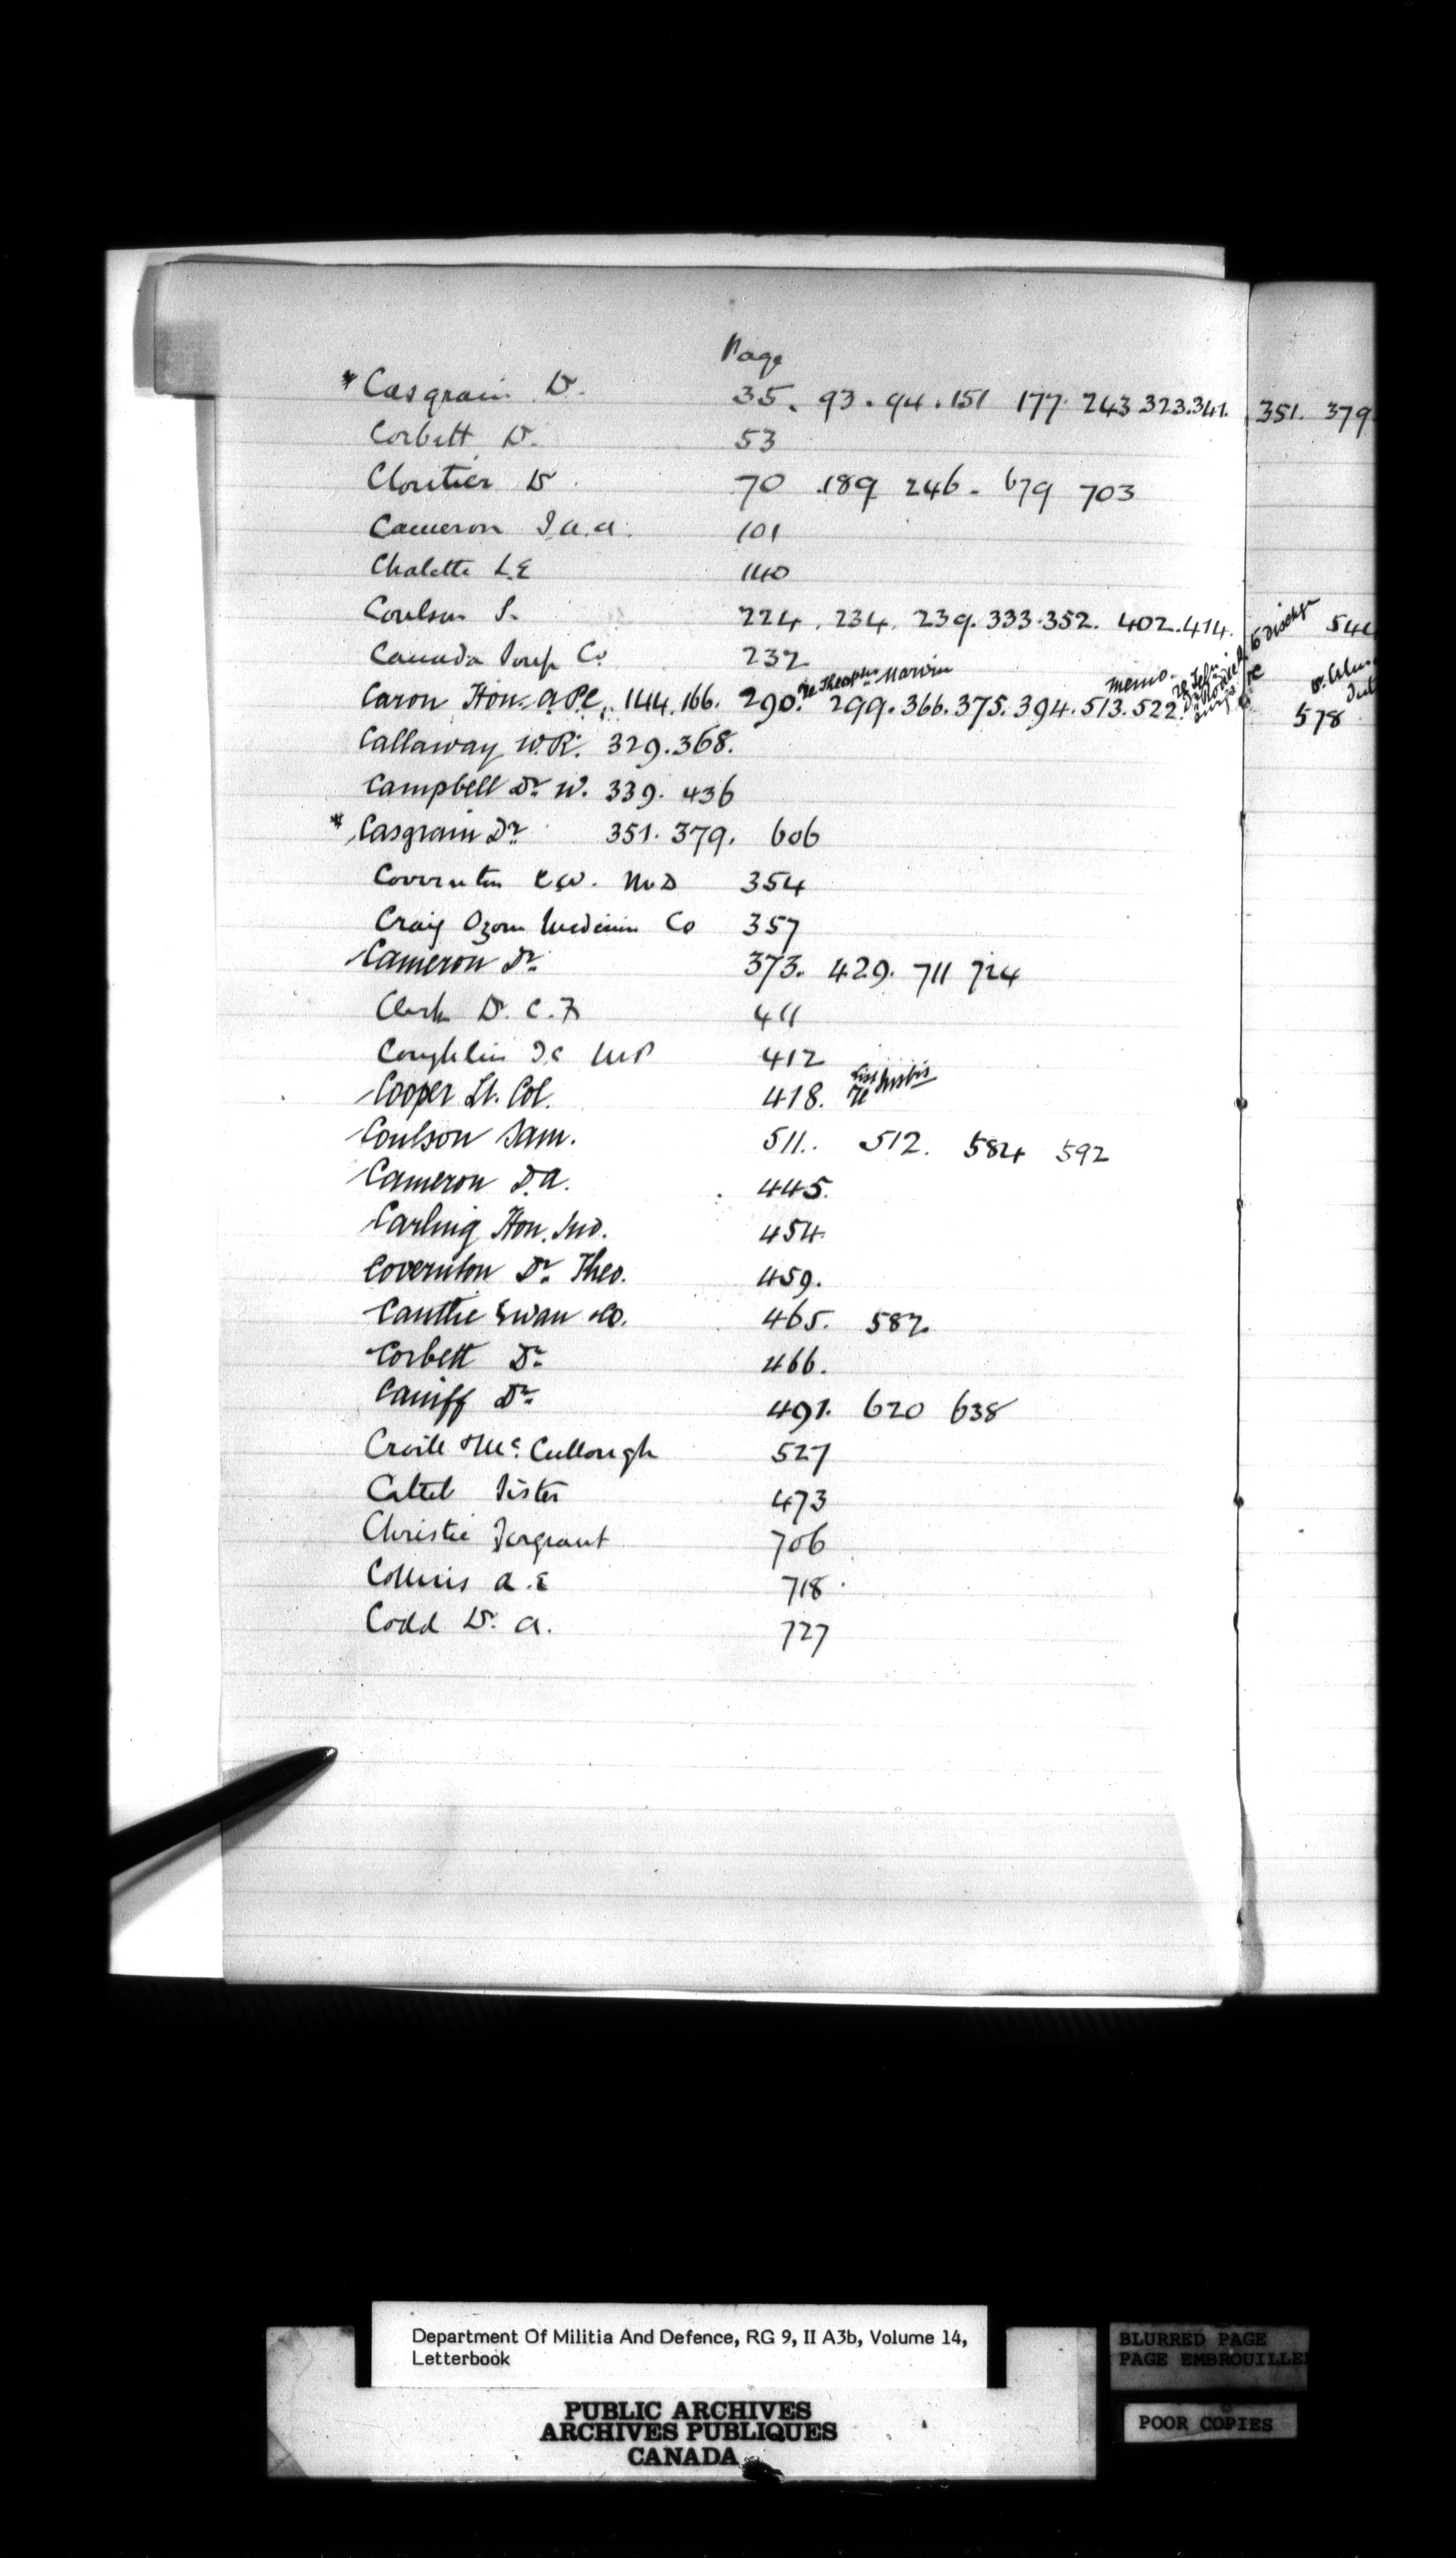 Page
* Casgrain Dr. 35. 93. 94. 151 177. 243 323. 341. 351. 379
Corbett Dr. 53
Cloutier Dr. 70 .189 246. 679 703
Cameron I.a.a. 101
Chalette L.E 140
Coulson S. 224. 234. 239. 333. 352. 402. 414. 544
Canada Soap Co 232
Caron Hon. A P C. 144. 166. 290. re Marvin 299. 366. 375. 394. 513. 522. memo 578
Callaway W.R. 329. 368.
Campbell Dr. W. 339. 436
* Casgrain Dr. 351. 379. 606
Covernton C.W. M.D 354
Craig Ozone Medicine Co 357
Cameron Dr. 373. 429. 711 724
Clark Dr. C. F. 411
Coughlin T.C M P 412
Cooper Lt. Col. 418. re
Coulson Sam. 511.. 512. 584 592
Cameron D.A. 445.
Carling Hon. Jno. 454.
Covernton Dr. Theo. 459.
Cantlie Ewan & Co. 465. 582
Corbett Dr. 466.
Caniff Dr. 491. 620 638
& McCullough 527
Sister 473
Christie Sergeant 706
Collins A. E 718
Codd Dr. A. 727
Department Of Militia And Defence, RG 9, II A3b, Volume 14,
Letterbook
PUBLIC ARCHIVES
ARCHIVES PUBLIQUES
CANADA
BLURRED PAGE
PAGE EMBROUILLE
POOR COPIES